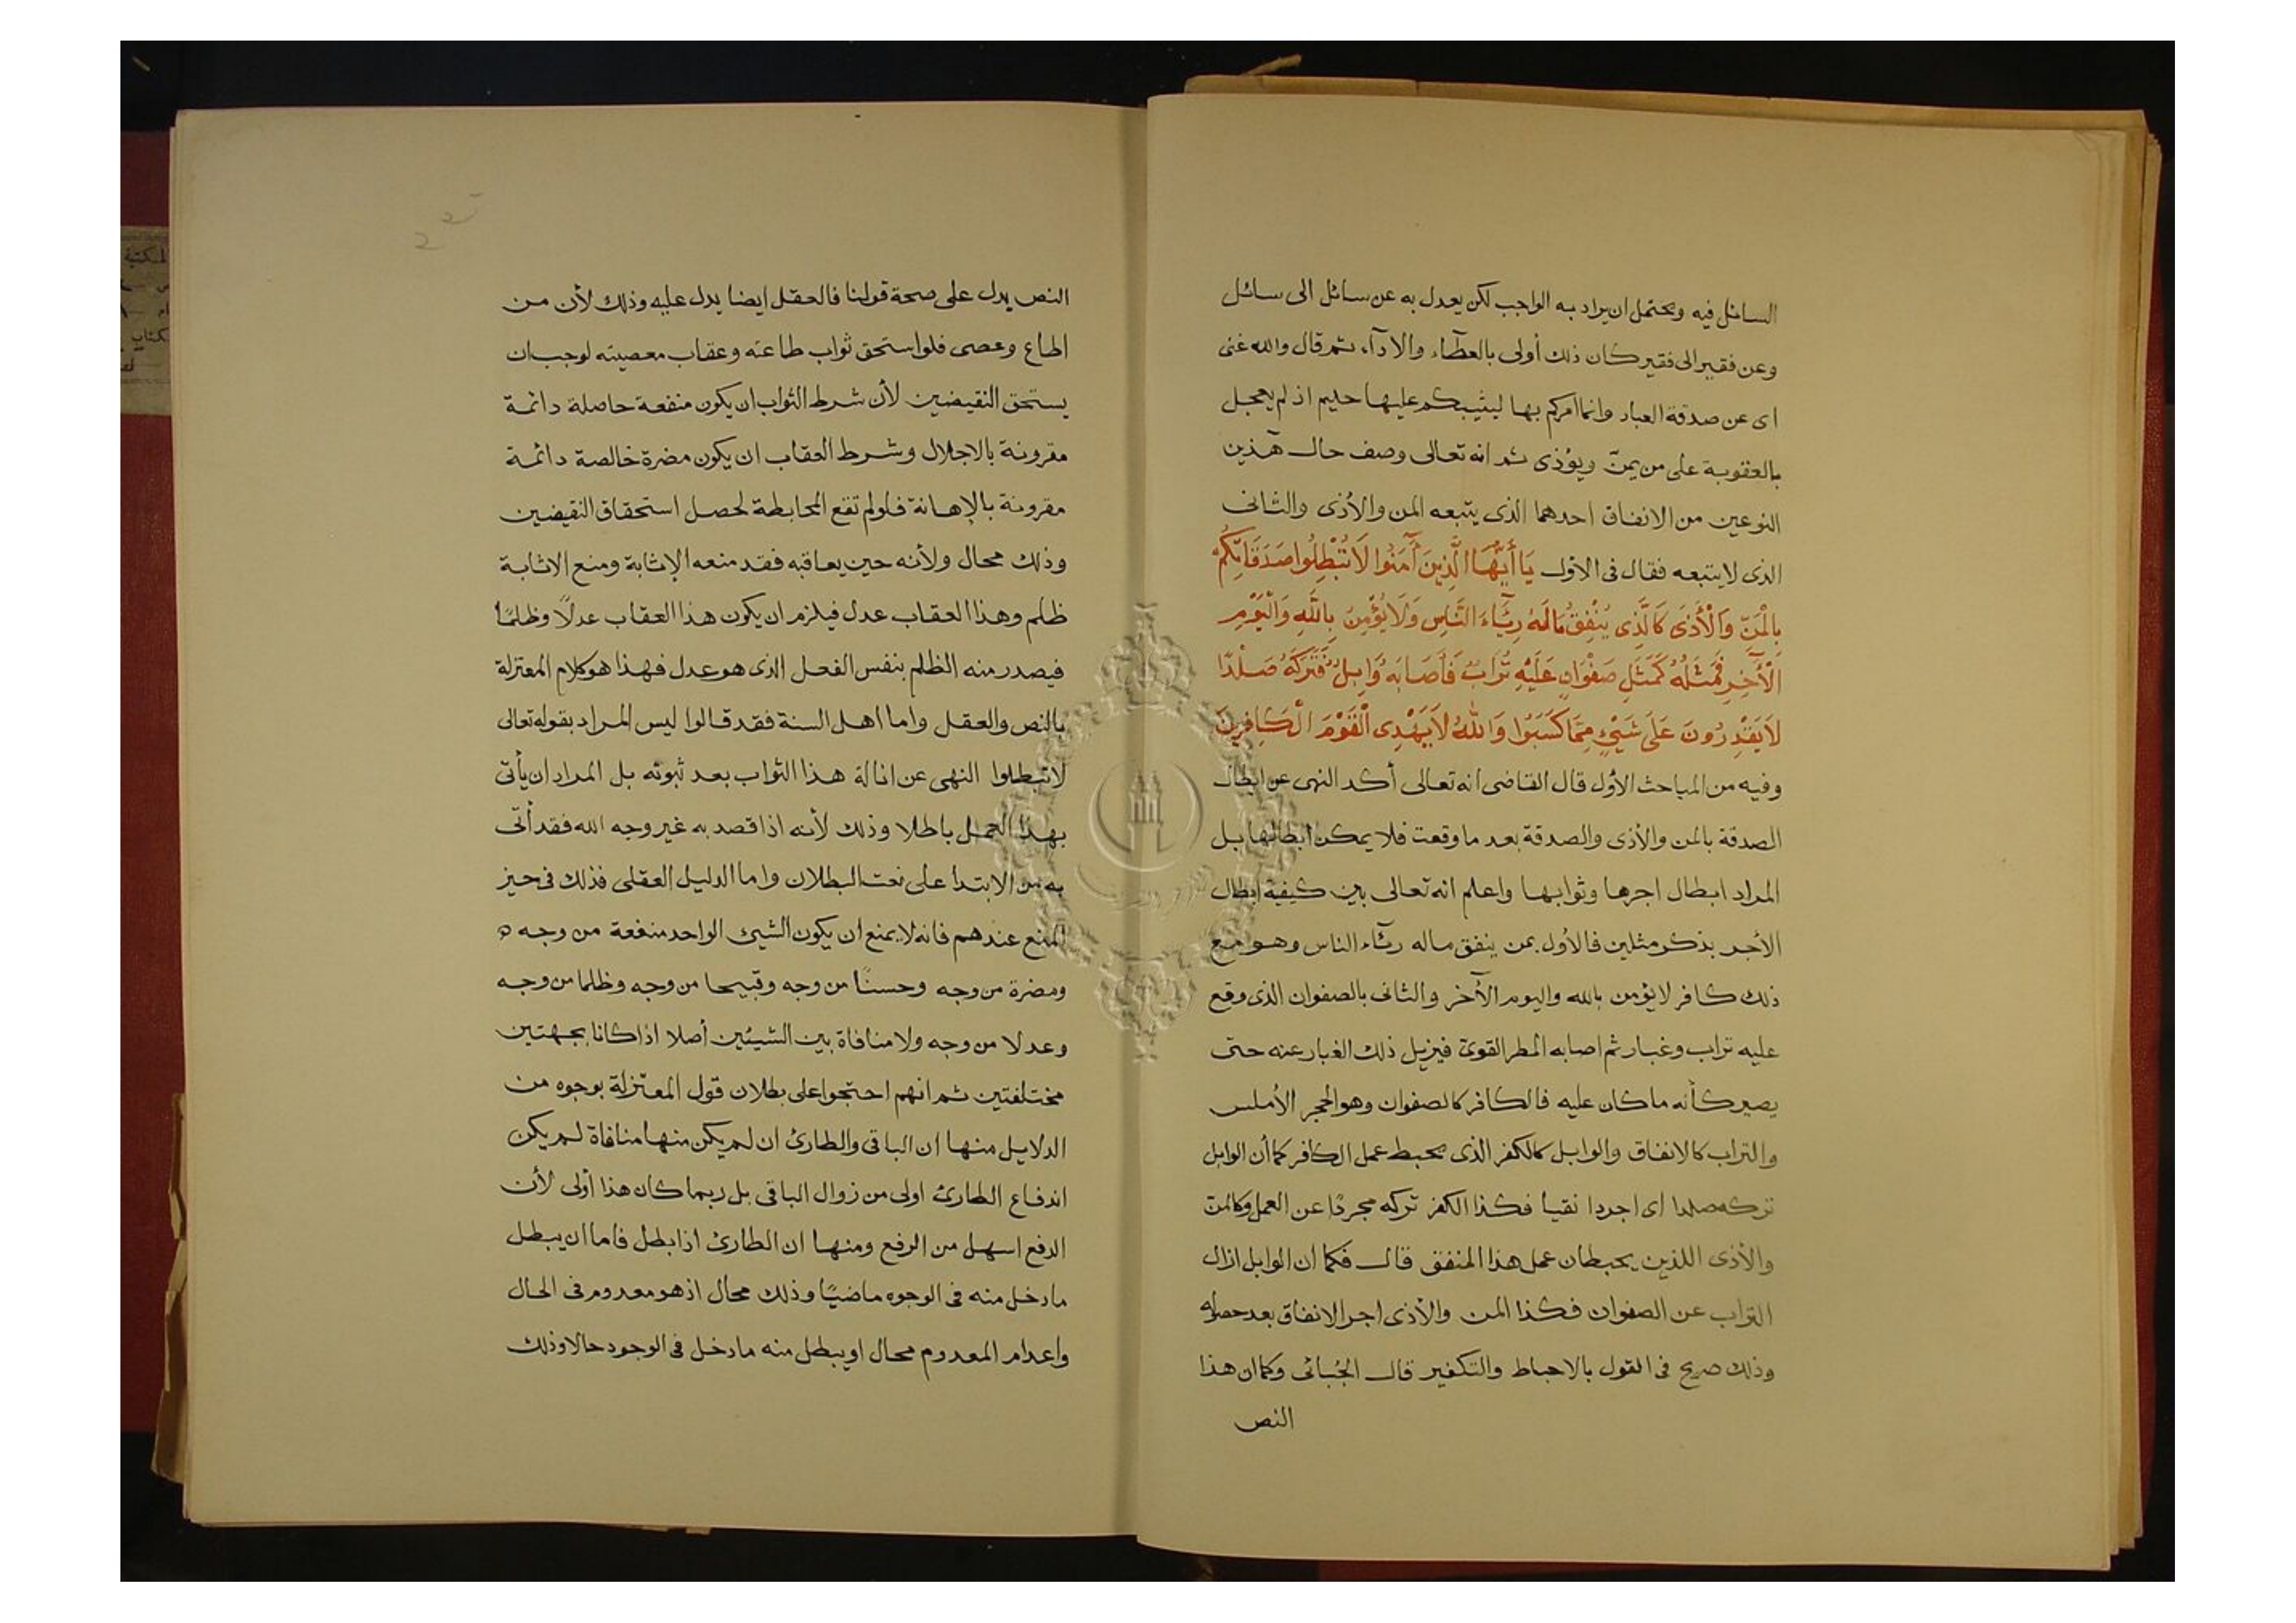 السائل فيه ويحتمل ان يراد به الواجب لكن يعدل به عن سائل الى سائل
وعن فقير الى فقير كان ذلك أولى بالعطآء والادآء ثم قال والله غنى
اى عن صدقة العباد وانما امركم بها ليثيبكم عليها حليم اذ لم يعجل
بالعقوبة على من يمنّ ويؤذى ثم انه تعالى وصف حال هذين
النوعين من الانفاق احدهما الذى يتبعه المن والأذى والثانى
الذى لا يتبعه فقال فى الاول يَا أَيُّهَا الَّذِينَ آمَنُوا لَا تُبْطِلُوا صَدَقَاتِكُمْ
بِالْمَنِّ وَالْأَذَى كَالَّذِى يُنْفِقُ مَالَهُ رِئَآءَ النَّاسِ وَلَا يُؤْمِنُ بِاللَّهِ وَالْيَوْمِ
الْآخِرِ فَمَثَلُهُ كَمَثَلِ صَفْوَانٍ عَلَيْهِ تُرَابٌ فَأَصَابَهُ وَابِلٌ فَتَرَكَهُ صَلْدًا
لَا يَقْدِرُونَ عَلَى شَيْءٍ مِمَّا كَسَبُوا وَاللهُ لَا يَهْدِى الْقَوْمَ الْكَافِرِينَ
وفيه من المباحث الأول قال القاضى انه تعالى أكد النهى عن ابطال
الصدقة بالمن والأذى والصدقة بعد ما وقعت فلا يمكن ابطالها بل
المراد ابطال اجرها وثوابها واعلم انه تعالى بين كيفية ابطال
الأجر بذكر مثلين فالأول بمن ينفق ماله رئآء الناس وهو مع
ذلك كافر لا يؤمن بالله واليوم الآخر والثانى بالصفوان الذى وقع
عليه تراب وغبار ثم اصابه المطر القوى فيزيل ذلك الغبار عنه حتى
يصير كأنه ما كان عليه فالكافر كالصفوان وهو الحجر الأملس
والتراب كالانفاق والوابل كالكفر الذى يحبط عمل الكافر كما أن الوابل
تركه صلدا اى اجردا نقيا فكذا الكفر تركه مجردًا عن العمل وكالمن
والأذى اللذين يحبطان عمل هذا المنفق قال فكما ان الوابل ازال
التراب عن الصفوان فكذا المن والأذى اجر الانفاق بعد حصوله
وذلك صريح فى القول بالاحباط والتكفير قال الجُبائى وكما ان هذا
النص
النص يدل على صحة قولنا فالعقل ايضا يدل عليه وذلك لأن من
اطاع وعصى فلو استحق ثواب طاعته وعقاب معصيته لوجب ان
يستحق النقيضين لأن شرط الثواب ان يكون منفعة حاصلة دائمة
مقرونة بالاجلال وشرط العقاب ان يكون مضرة خالصة دائمة
مقرونة بالإهانة فلو لم تقع المحابطة لحصل استحقاق النقيضين
وذلك محال ولأنه حين يعاقبه فقد منعه الإثابة ومنع الاثابة
ظلم وهذا العقاب عدل فيلزم ان يكون هذا العقاب عدلًا وظلمًا
فيصدر منه الظلم بنفس الفعل الذى هو عدل فهذا هو كلام المعتزلة
بالنص والعقل واما اهل السنة فقد قالوا ليس المراد بقوله تعالى
لا تبطلوا النهى عن ازالة هذا الثواب بعد ثبوته بل المراد ان يأتى
بهذا العمل باطلا وذلك لأنه اذا قصد به غير وجه الله فقد أتى
به من الابتدا على نعت البطلان واما الدليل العقلى فذلك فى حيز
المنع عندهم فانه لا يمنع ان يكون الشيئ الواحد منفعة من وجه
ومضرة من وجه وحسنًا من وجه وقبيحا من وجه وظلما من وجه
وعدلا من وجه ولا منافاة بين الشيئين أصلا اذا كانا بجهتين
مختلفتين ثم انهم احتجوا على بطلان قول المعتزلة بوجوه من
الدلايل منها ان الباقى والطارئ ان لم يكن منها منافاة لم يكن
اندفاع الطارئ اولى من زوال الباقى بل ربما كان هذا أولى لأن
الدفع اسهل من الرفع ومنها ان الطارئ اذا بطل فاما ان يبطل
ما دخل منه فى الوجوه ماضيًا وذلك محال اذ هو معدوم فى الحال
واعدام المعدوم محال او يبطل منه ما دخل فى الوجود حالا وذلك